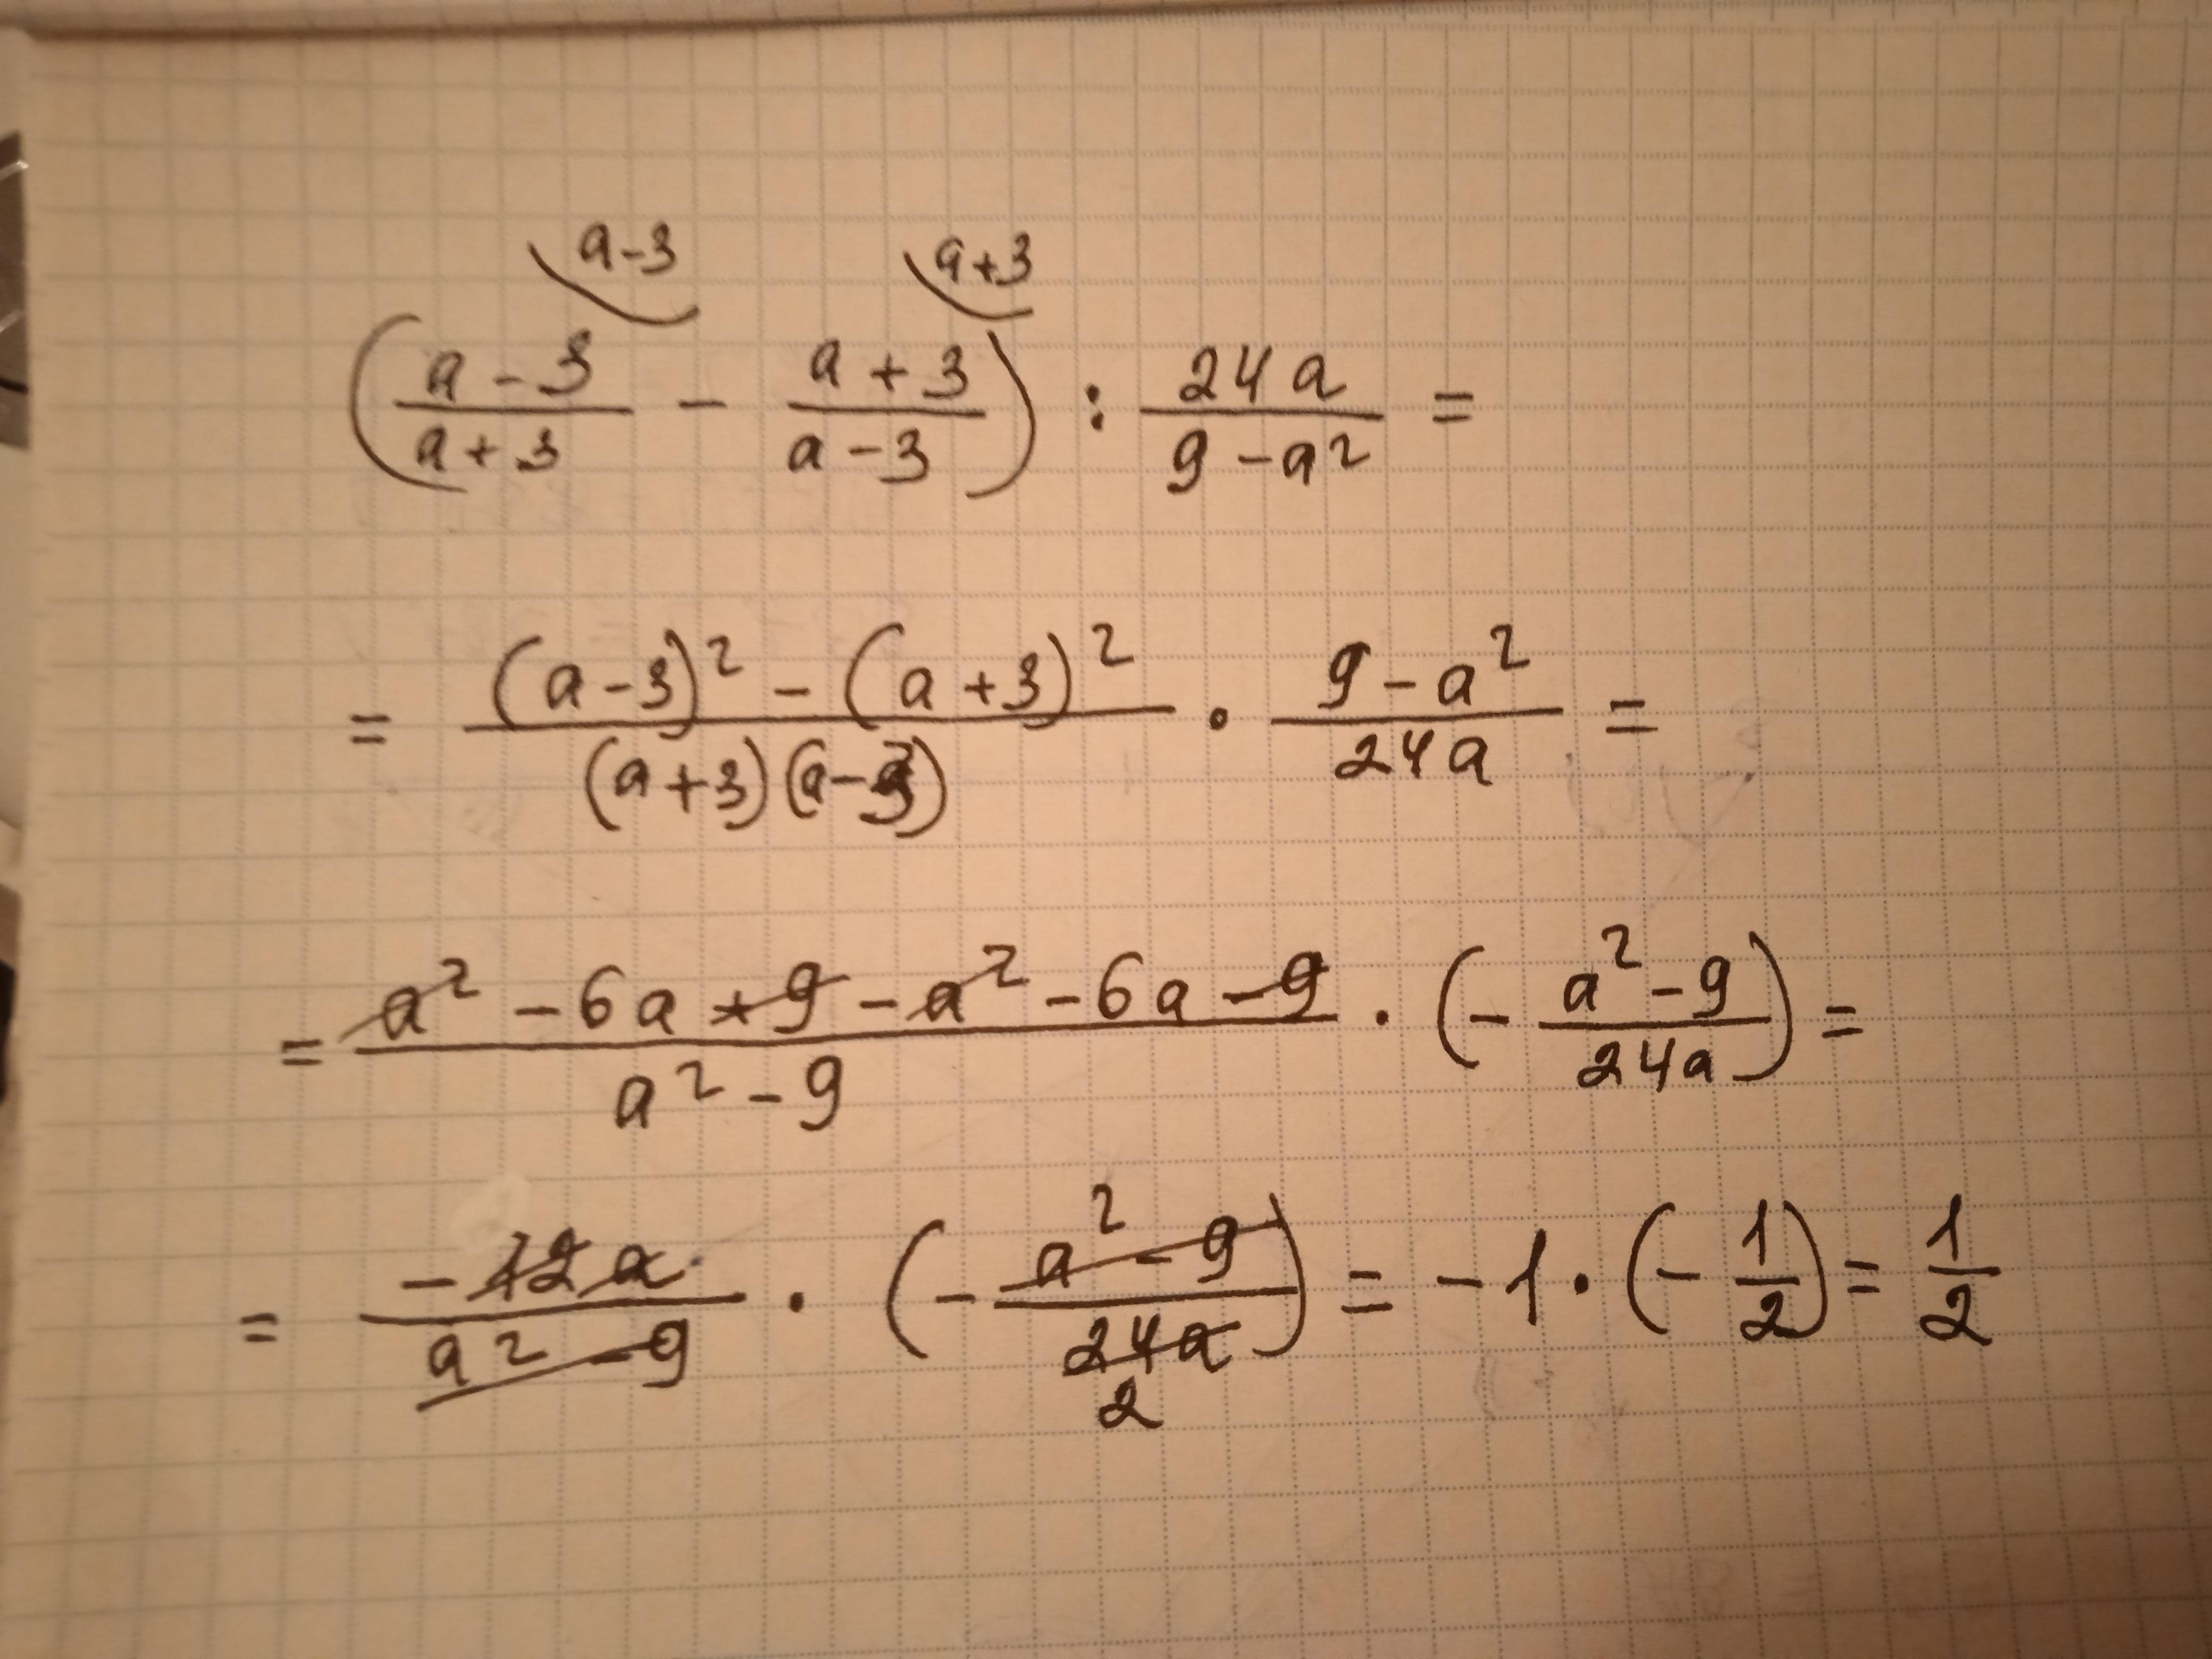 a-3 a+3
(a-3/a+3 - a+3/a-3) : 24a/9-a² =
= (a-3)² - (a+3)²/(a+3)(a-3) · 9-a²/24a =
= a² - 6a + 9 - a² - 6a - 9/a² - 9 · (- a² - 9/24a) =
= -12a/a² - 9 · (- a² - 9/24a) = -1 · (- 1/2) = 1/2
2